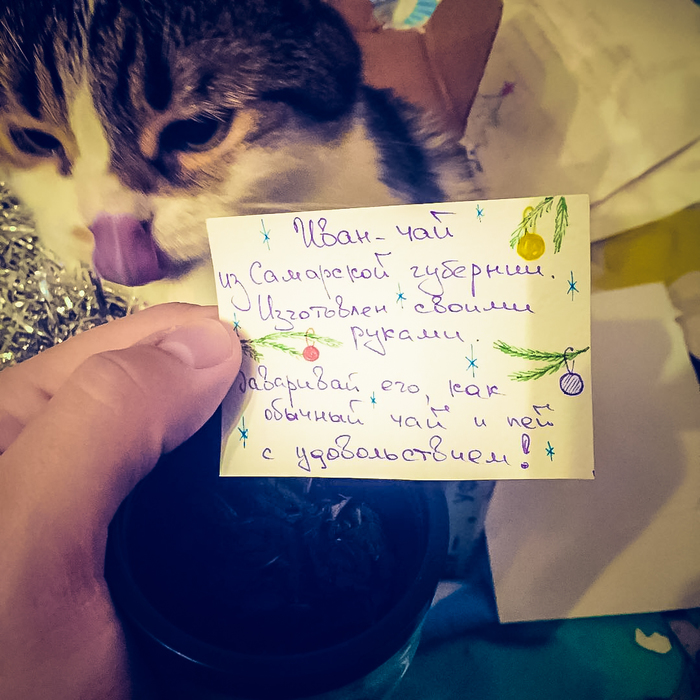 Иван-чай
из Самарской губернии.
Изготовлен своими
руками.
Заваривай его, как
обычный чай и пей
с удовольствием!